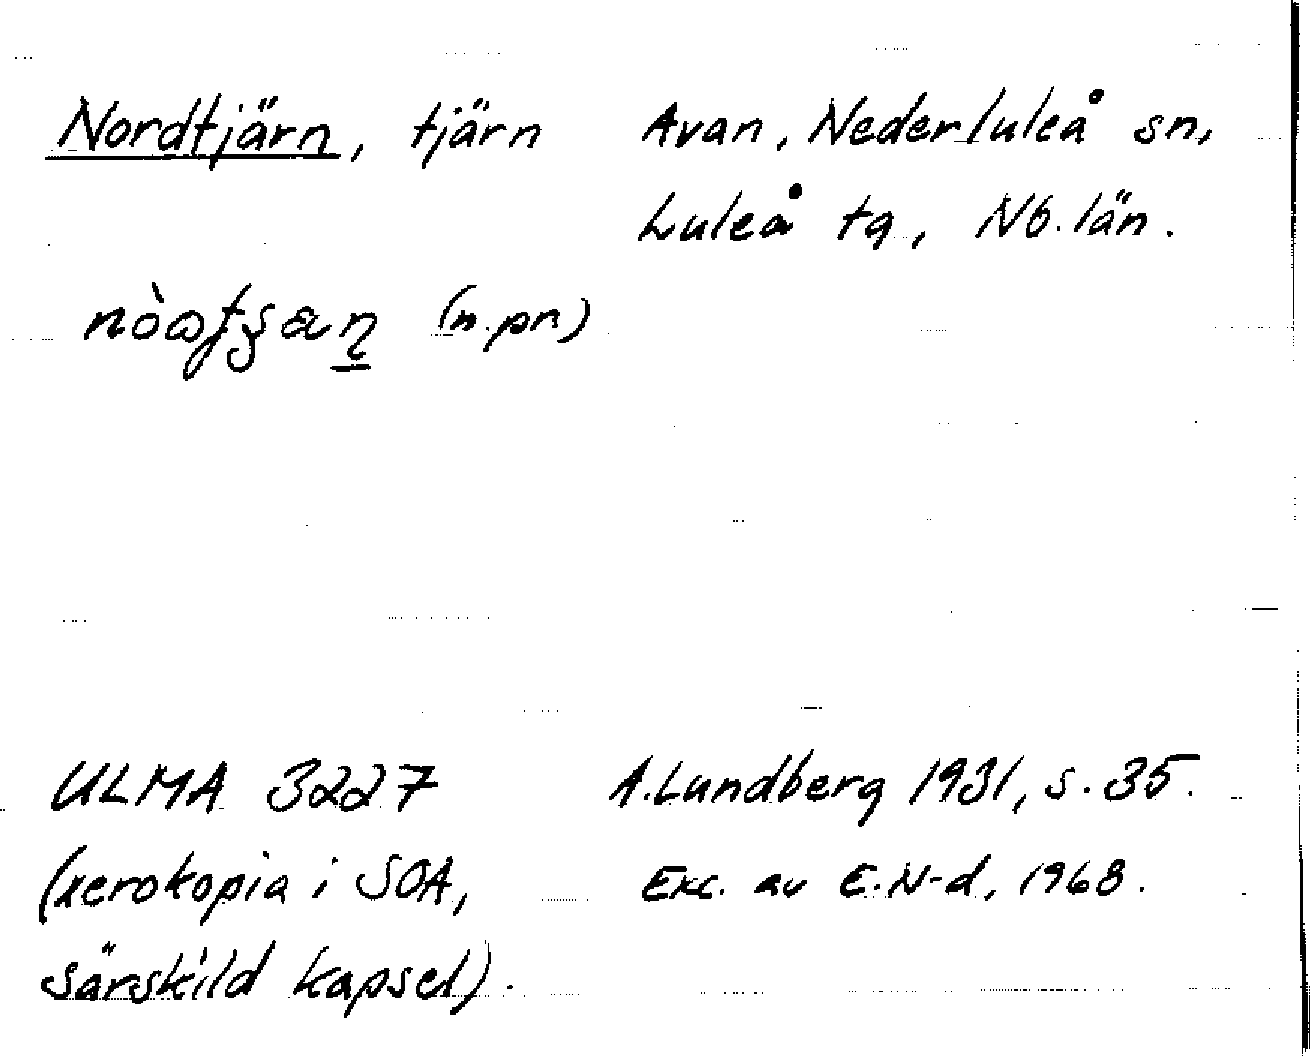 Nordtjärn, tjärn Avan, Nederluleå sn,
Luleå tg, Nb. län.
(n. pn)
ULMA 3227 A. Lundberg 1931, s. 35.
(xerokopia i SOA, Exc. av E. N-d, 1968.
särskild kapsel).